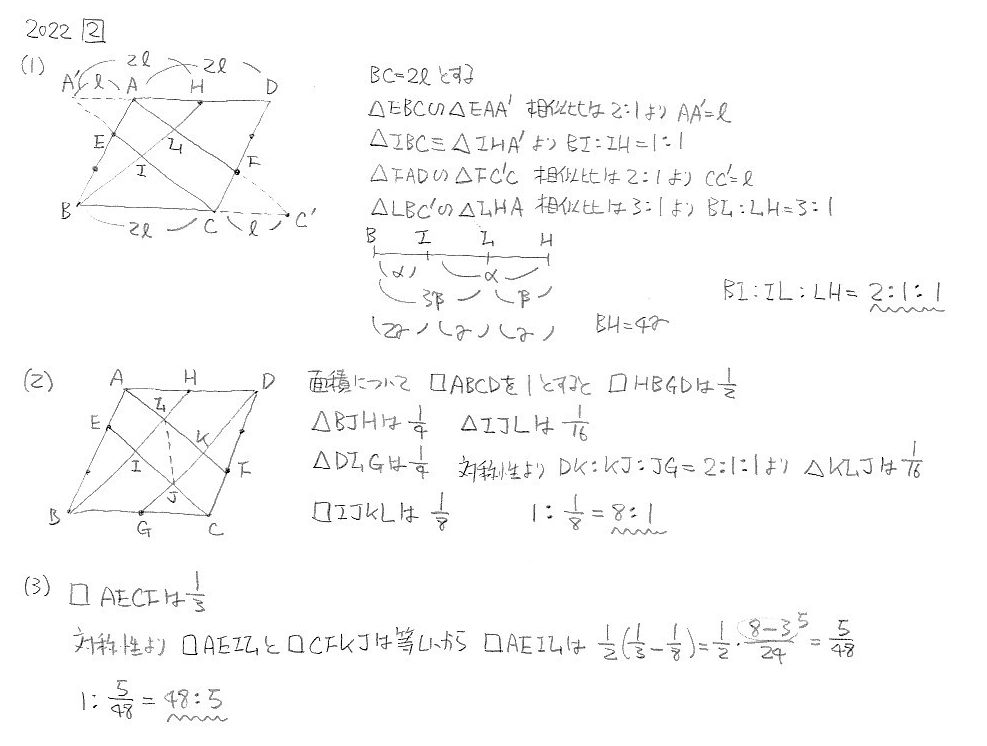 2022 2
(1)
2l 2l
A' l A H D
E L F
I
B' C C'
2l l
BC=2lとする
△EBC∽△EAA' 相似比は2:1より AA'=l
△IBC≡△IHA'より BI:IH=1:1
△FAD∽△FC'C 相似比は2:1より CC'=l
△LBC'∽△LHA 相似比は3:1より BL:LH=3:1
B I L H
α α
3β β
2γ γ γ BH=4γ
BI:IL:LH=2:1:1
(2)
A H D
E L K F
I J
B G C
面積について □ABCDを1とすると □HBGDは1/2
△BJHは1/4 △IJLは1/16
△DLGは1/4 対称性より DK:KJ:JG=2:1:1より △KLJは1/16
□IJKLは1/8 1:1/8=8:1
(3) □AECFは1/3
対称性より □AEILと□CFKJは等しいから □AEILは 1/2(1/3-1/8)=1/2・(8-3)/24 5=5/48
1:5/48=48:5